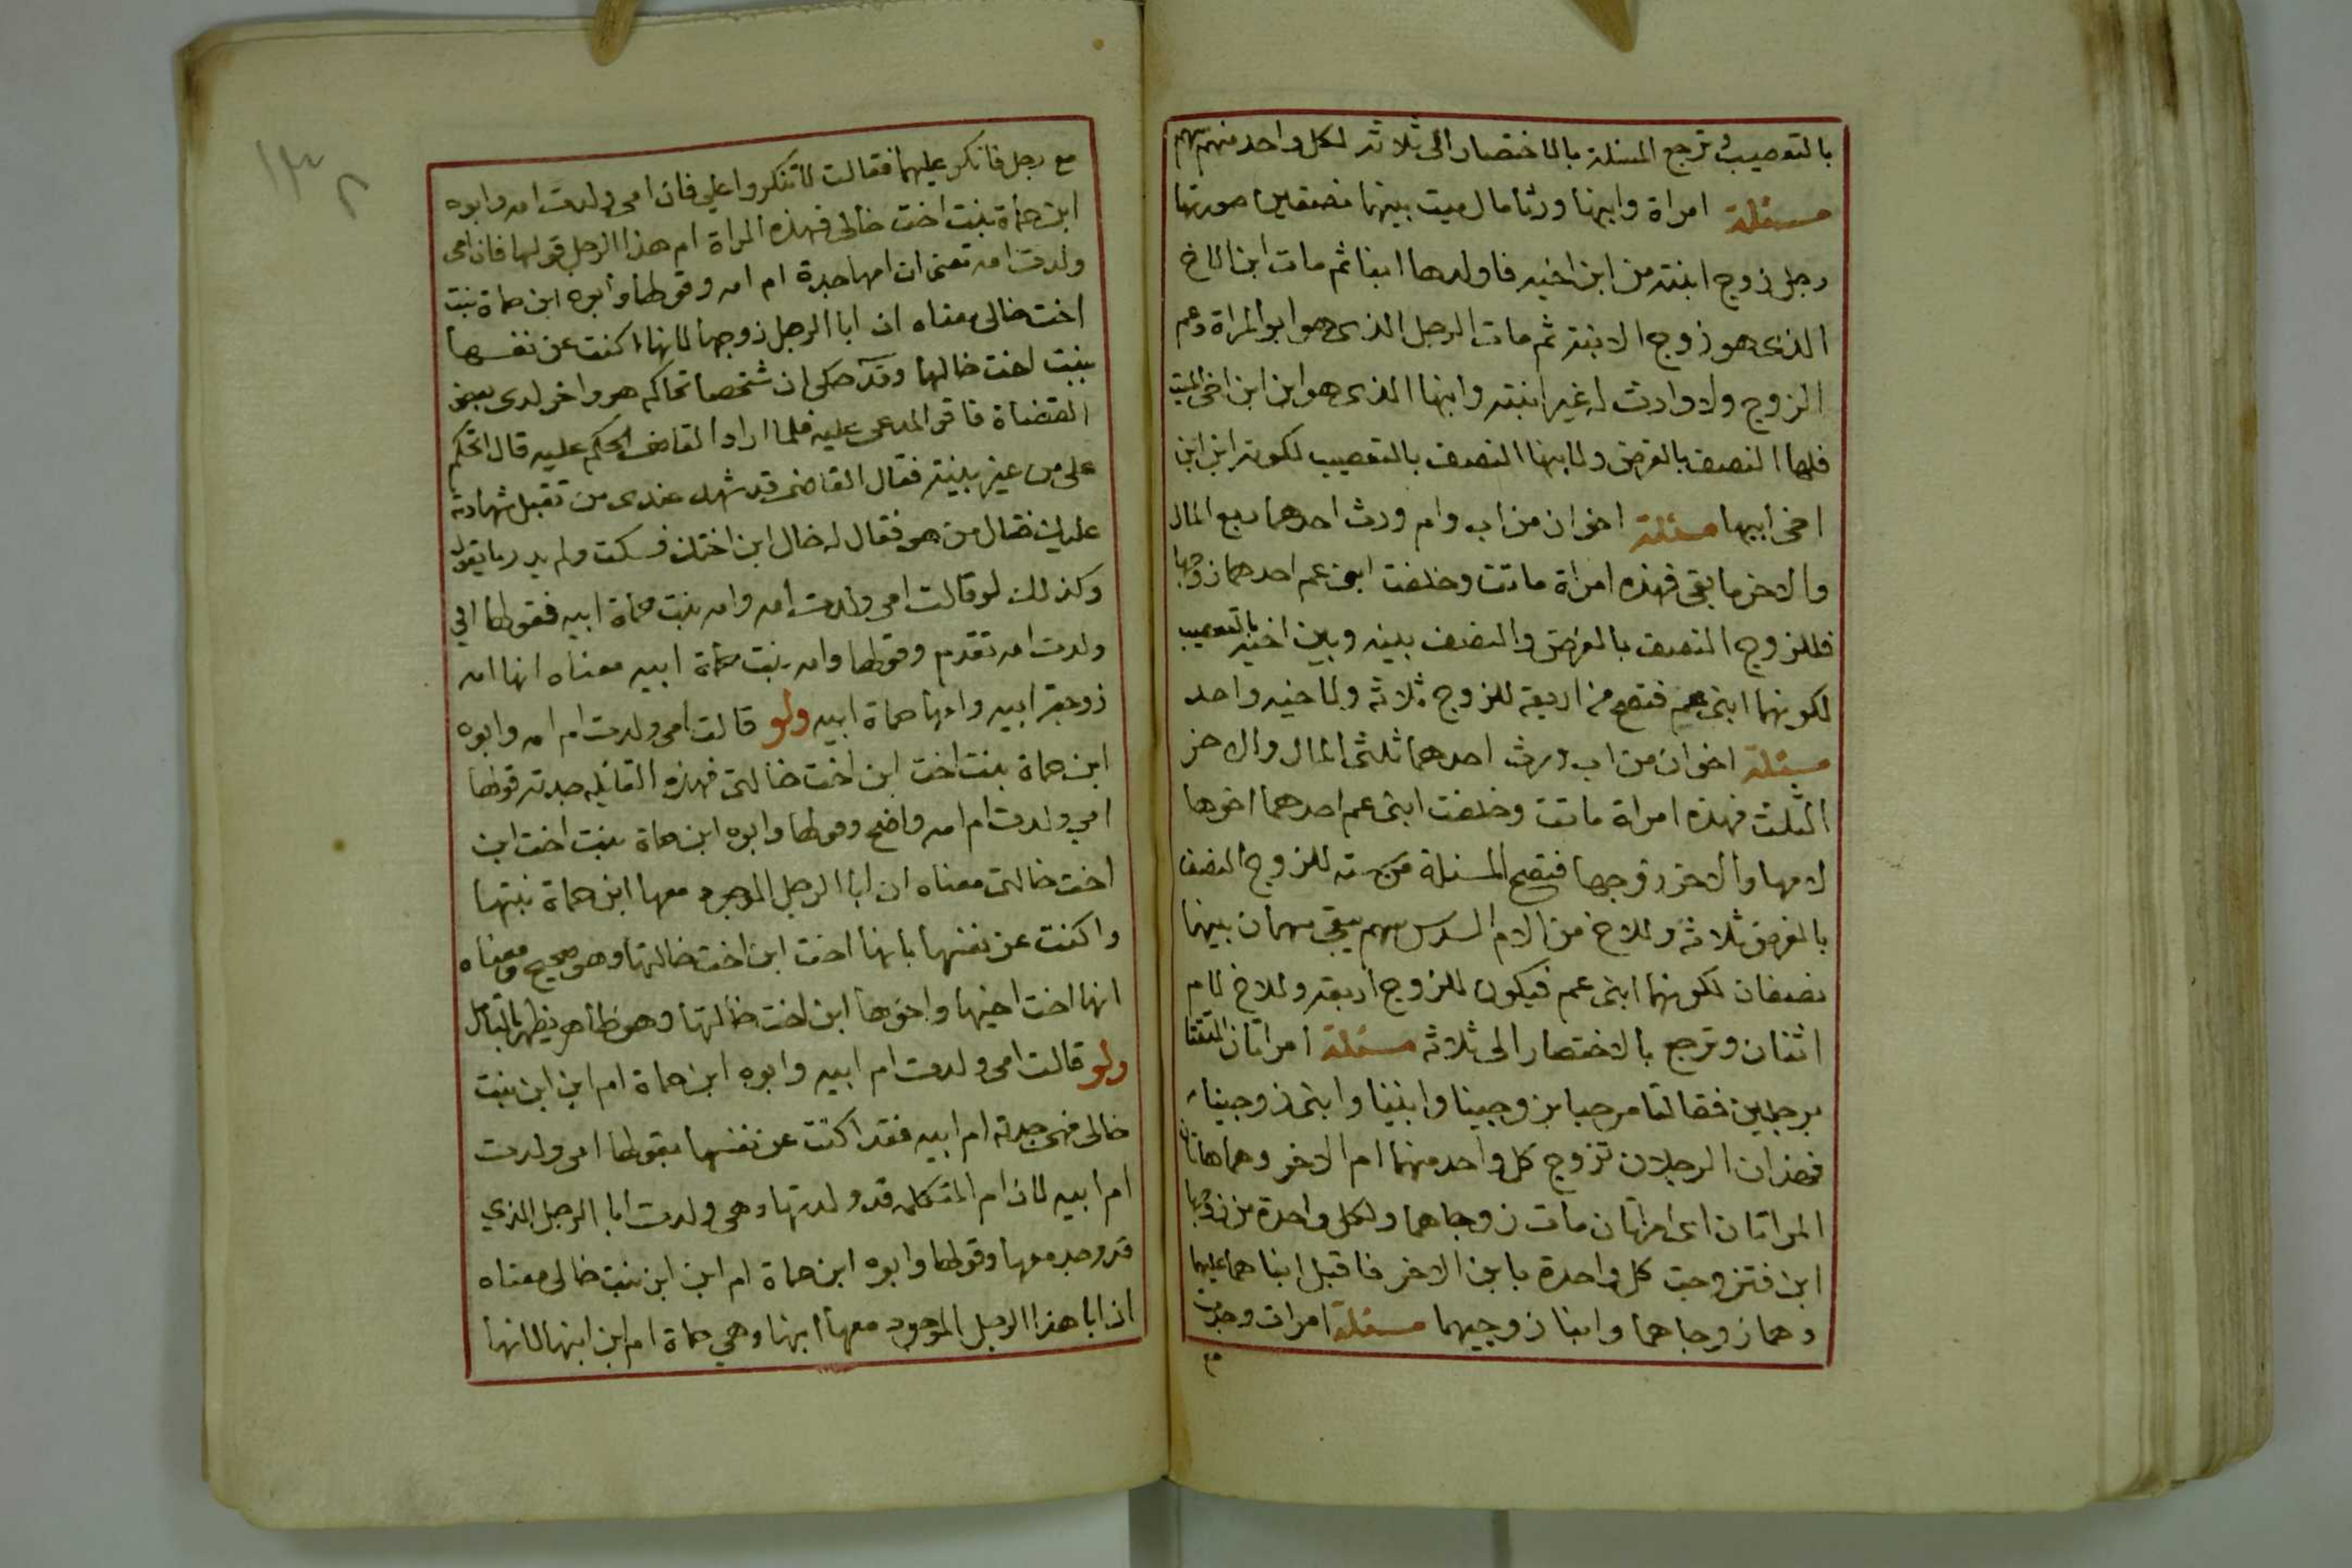 بالتعصيب وترجع المسئلة بالاختصار الى ثلاثة لكل واحد منهم سهم
مسئلة امراة وابنها ورثا مال ميت بينهما نصفين صورتها
رجل زوج ابنته من ابن اخيه فاولدها ابنا ثم مات ابن الاخ
الذى هو زوج الابنة ثم مات الرجل الذى هو ابو المراة وعم
الزوج ولا وارث له غير ابنته وابنها الذى هو ابن ابن اخى الميت
فلها النصف بالفرض ولابنها النصف بالتعصيب لكونه ابن ابن
اخى ابيها مسئلة اخوان من اب وام ورث احدهما ربع المال
والاخر ما بقى فهذه امراة ماتت وخلفت ابنى عم احدهما زوجها
فللزوج النصف بالفرض والنصف بينه وبين اخيه بالتعصيب
لكونهما ابنى عم فتصح من اربعة للزوج ثلاثة ولاخيه واحد
مسئلة اخوان من اب ورث احدهما ثلثى المال والاخر
الثلث فهذه امراة ماتت وخلفت ابنى عم احدهما اخوها
لامها والاخر زوجها فتصح المسئلة من ستة للزوج النصف
بالفرض ثلاثة وللاخ من الام السدس سهم يبقى سهمان بينهما
نصفان لكونهما ابنى عم فيكون للزوج اربعة وللاخ للام
اثنان وترجع بالاختصار الى ثلاثة مسئلة امراتان التقتا
برجلين فقالتا مرحبا بزوجينا وابنينا وابنى زوجينا
فهذان الرجلان تزوج كل واحد منهما ام الاخر وهما هاتان
المراتان اى امراتان مات زوجاهما ولكل واحدة من زوجها
ابن فتزوجت كل واحدة بابن الاخر فاقبل ابناهما عليهما
وهما زوجاهما وابنا زوجيهما مسئلة امرات وجدت
مع
١٣٢
مع رجل فانكر عليهما فقالت لا تنكروا علي فان امى ولدت امه وابوه
ابن حماة بنت اخت خالى فهذه المراة ام هذا الرجل قولها فان امى
ولدت امه تعنى ان امها جدة ام امه وقولها وابوه ابن حماة بنت
اخت خالى معناه ان ابا الرجل زوجها لانها اكنت عن نفسها
ببنت اخت خالها وقد حكى ان شخصا تحاكم هو واخر لدى بعض
القضاة فاقر المدعى عليه فلما اراد القاضى الحكم عليه قال اتحكم
على من غير بينة فقال القاضى قد شهد عندى من تقبل شهادته
عليك فقال من هو فقال له خال ابن اختك فسكت ولم يدر ما يقول
وكذلك لو قالت امى ولدت امه وامه بنت حماة ابيه فقولها امي
ولدت امه تقدم وقولها وامه بنت حماة ابيه معناه انها امه
زوجة ابيه وامها حماة ابيه ولو قالت امى ولدت ام امه وابوه
ابن حماة بنت اخت ابن اخت خالتى فهذه القايله جدته قولها
امي ولدت ام امه واضح وقولها وابوه ابن حماة بنت اخت ابن
اخت خالتى معناه ان ابا الرجل الموجود معها ابن حماة بنتها
واكنت عن نفسها بانها اخت ابن اخت خالتها وهو صحيح ومعناه
انها اخت اخيها واخوها ابن اخت خالتها وهو ظاهر يظهر بالتامل
ولو قالت امى ولدت ام ابيه وابوه ابن حماة ام ابن ابن بنت
خالى فهى جدته ام ابيه فقد اكنت عن نفسها بقولها امى ولدت
ام ابيه لان ام المتكلمه قد ولدتها وهى ولدت ابا الرجل الذي
قد وجد معها وقولها وابوه ابن حماة ام ابن ابن بنت خالى معناه
ان ابا هذا الرجل الموجود معها ابنها وهي حماة ام ابن ابنها لانها